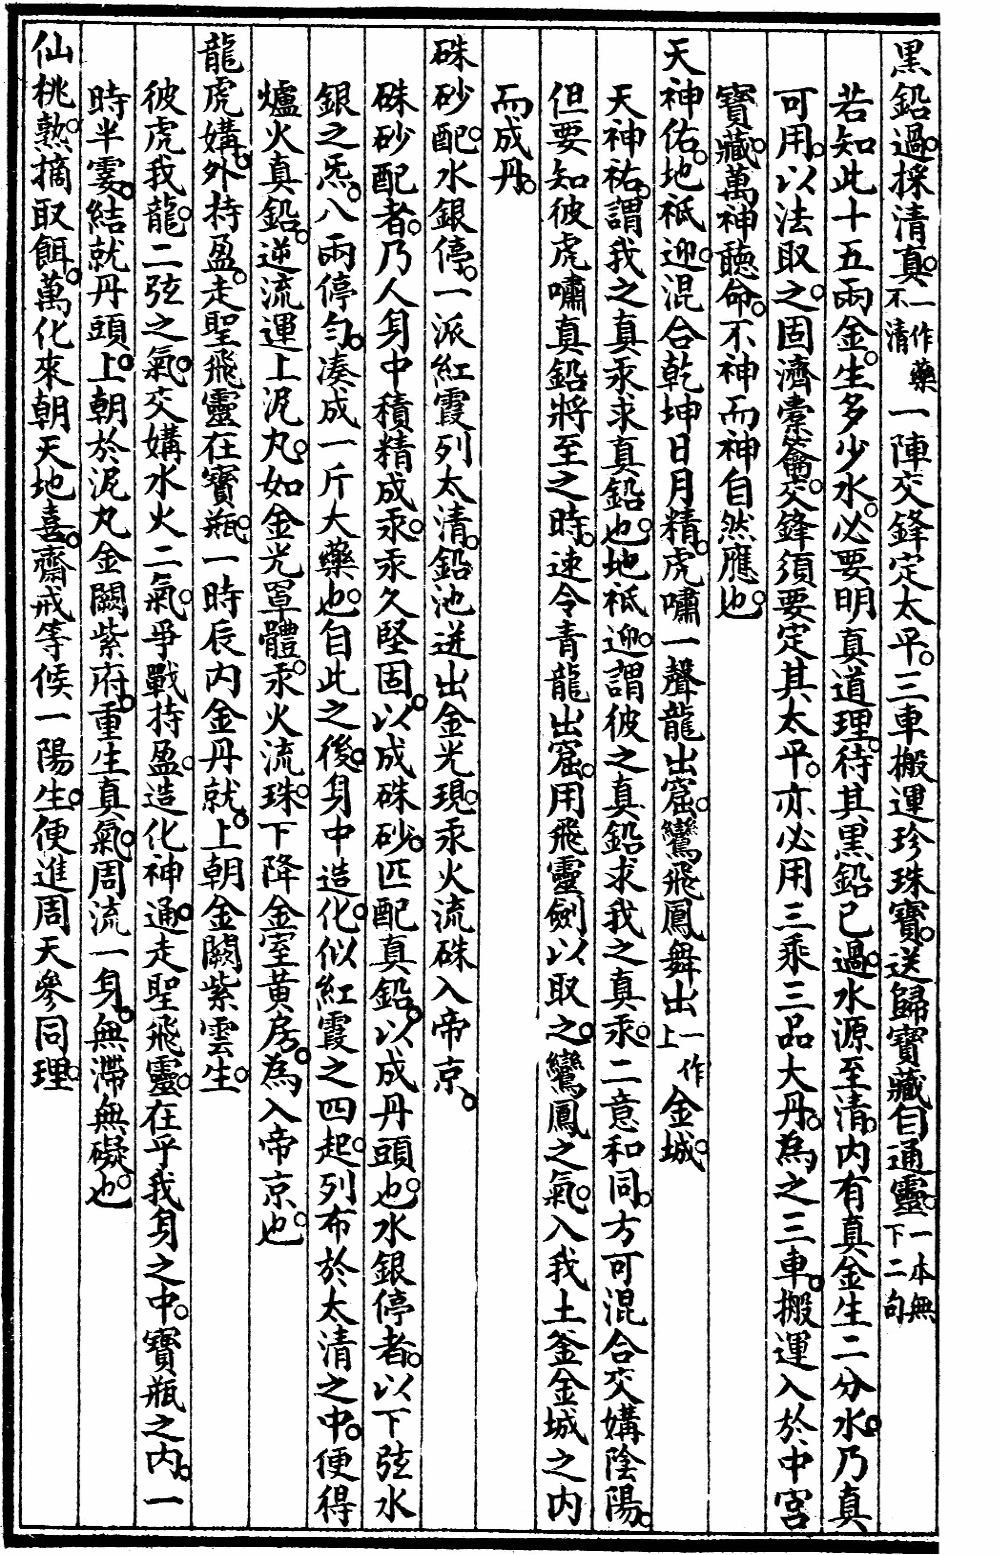 黑鉛過。採清真。一作藥不清一陣交鋒定太平。三車搬運珍珠寶。送歸寶藏自通靈。一本無下二句
若知此十五兩金。生多少水。必要明真道理。待其黑鉛已過。水源至清。內有真金生二分水。乃真
可用。以法取之。固濟橐籥。交鋒須要定其太平。亦必用三乘三品大丹。為之三車。搬運入於中宮
寶藏。萬神聽命。不神而神自然應也。
天神佑。地祇迎。混合乾坤日月精。虎嘯一聲龍出窟。鸞飛鳳舞出一作上金城。
天神祐。謂我之真汞求真鉛也。地祇迎。謂彼之真鉛求我之真汞。二意和同。方可混合交媾陰陽。
但要知彼虎嘯真鉛將至之時。速令青龍出窟。用飛靈劍以取之。鸞鳳之氣。入我土釜金城之內
而成丹。
硃砂配。水銀停。一派紅霞列太清。鉛池迸出金光現。汞火流硃入帝京。
硃砂配者。乃人身中積精成汞。汞久堅固。以成硃砂。匹配真鉛。以成丹頭也。水銀停者。以下弦水
銀之炁。八兩停勻。湊成一斤大藥也。自此之後。身中造化。似紅霞之四起。列布於太清之中。便得
爐火真鉛。逆流運上泥丸。如金光罩體。汞火流珠。下降金室黃房。為入帝京也。
龍虎媾。外持盈。走聖飛靈在寶瓶。一時辰內金丹就。上朝金闕紫雲生。
彼虎我龍。二弦之氣。交媾水火二氣。爭戰持盈。造化神通。走聖飛靈。在乎我身之中。寶瓶之內。一
時半霎。結就丹頭。上朝於泥丸金闕紫府。重生真氣。周流一身。無滯無礙也。
仙桃熟。摘取餌。萬化來朝天地喜。齋戒等候一陽生。便進周天參同理。